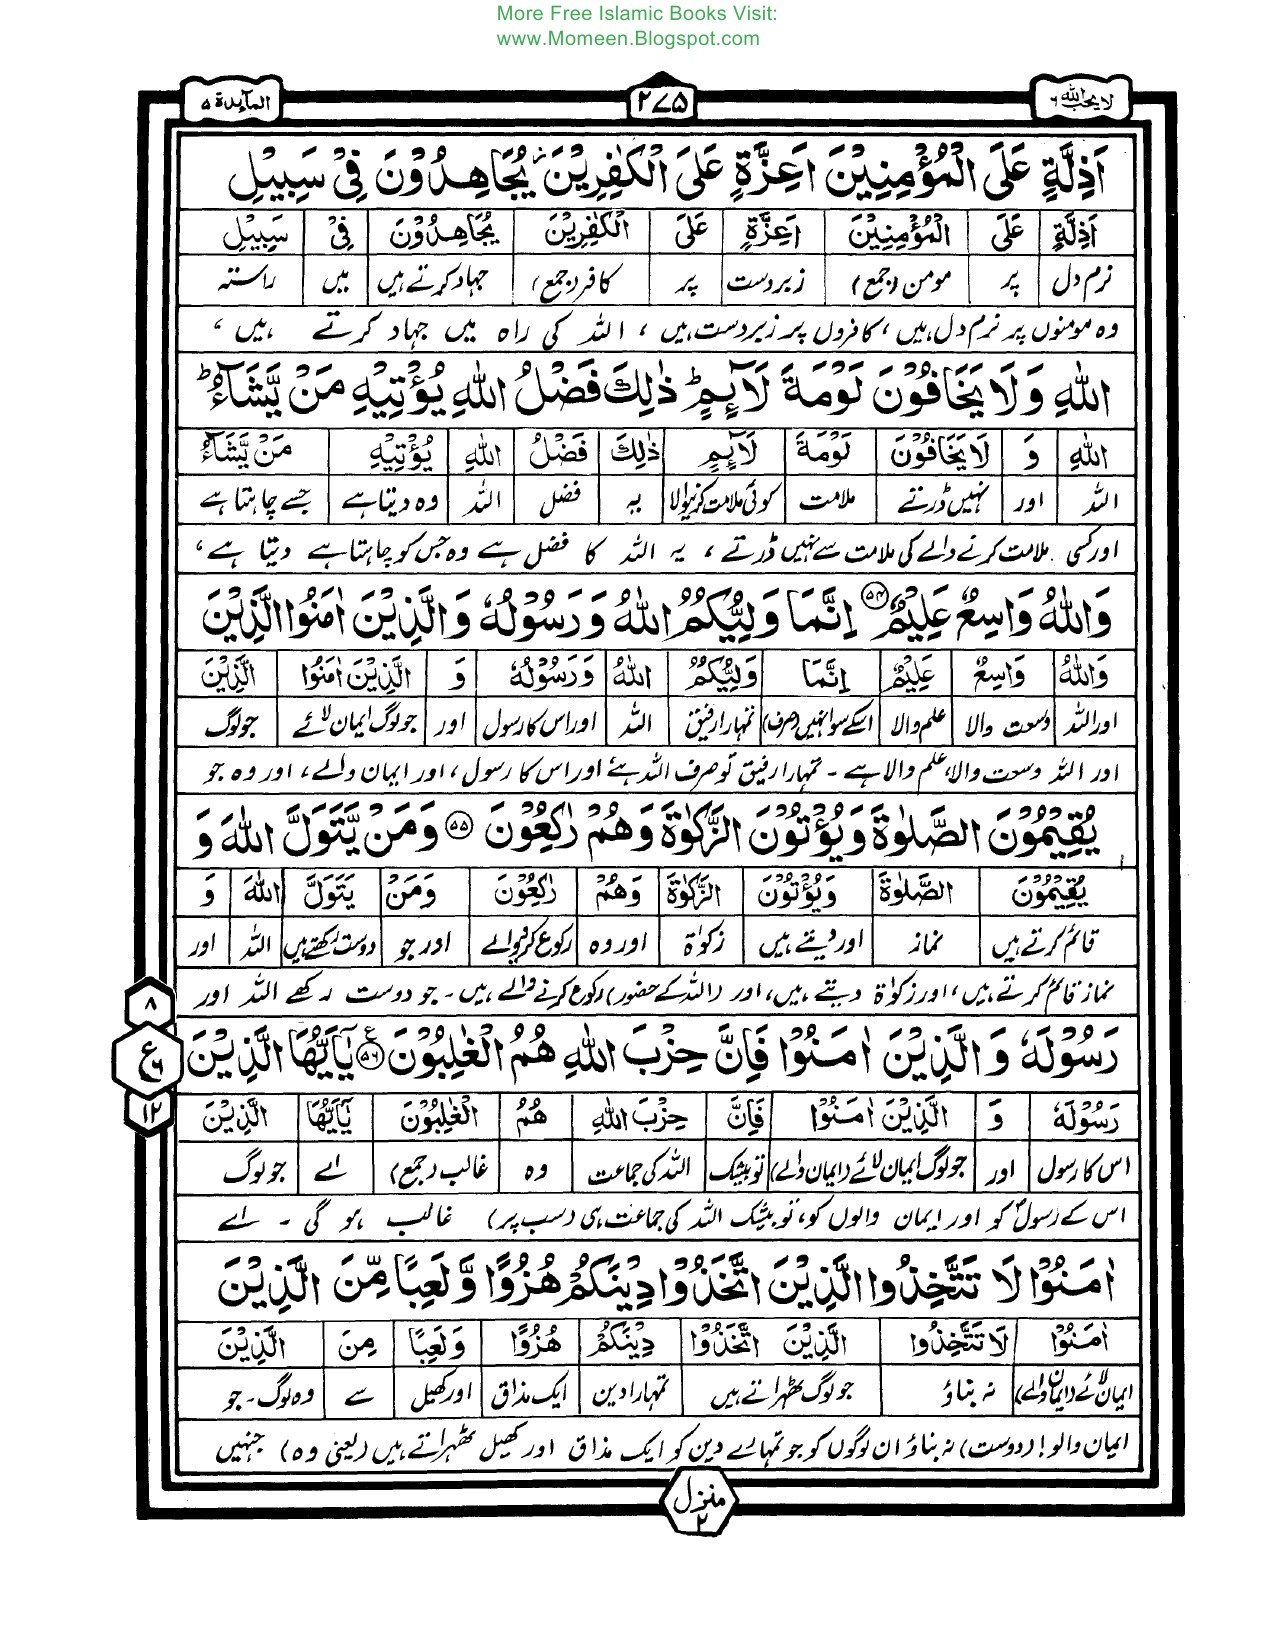 More Free Islamic Books Visit:
www.Momeen.Blogspot.com
لا یحب اللہ ۶
۲۷۵
المآئدۃ ۵
اَذِلَّةٍ عَلَى الْمُؤْمِنِيْنَ اَعِزَّةٍ عَلَى الْكٰفِرِيْنَ ز يُجَاهِدُوْنَ فِيْ سَبِيْلِ
اَذِلَّةٍ عَلَى الْمُؤْمِنِيْنَ اَعِزَّةٍ عَلَى الْكٰفِرِيْنَ يُجَاهِدُوْنَ فِيْ سَبِيْلِ
نرم دل پر مومن (جمع) زبردست پر کافر (جمع) جہاد کرتے ہیں میں راستہ
وہ مومنوں پر نرم دل ہیں، کافروں پر زبردست ہیں، اللہ کی راہ میں جہاد کرتے ہیں،
اللهِ وَلَا يَخَافُوْنَ لَوْمَةَ لَآئِمٍ ط ذٰلِكَ فَضْلُ اللهِ يُؤْتِيْهِ مَنْ يَّشَآءُ ط
اللهِ وَ لَا يَخَافُوْنَ لَوْمَةَ لَآئِمٍ ذٰلِكَ فَضْلُ اللهِ يُؤْتِيْهِ مَنْ يَّشَآءُ
اللہ اور نہیں ڈرتے ملامت کوئی ملامت کرنیوالا یہ فضل اللہ وہ دیتا ہے جسے چاہتا ہے
اور کسی ملامت کرنے والے کی ملامت سے نہیں ڈرتے، یہ اللہ کا فضل ہے وہ جس کو چاہتا ہے دیتا ہے،
وَاللهُ وَاسِعٌ عَلِيْمٌ ۵۴ اِنَّمَا وَلِيُّكُمُ اللهُ وَرَسُوْلُهٗ وَالَّذِيْنَ اٰمَنُوا الَّذِيْنَ
وَاللهُ وَاسِعٌ عَلِيْمٌ اِنَّمَا وَلِيُّكُمُ اللهُ وَرَسُوْلُهٗ وَ الَّذِيْنَ اٰمَنُوا الَّذِيْنَ
اور اللہ وسعت والا علم والا اسکے سوا نہیں (صرف) تمہارا رفیق اللہ اور اس کا رسول اور جو لوگ ایمان لائے جو لوگ
اور اللہ وسعت والا، علم والا ہے ۔ تمہارا رفیق تو صرف اللہ ہے اور اس کا رسول، اور ایمان والے، اور وہ جو
يُقِيْمُوْنَ الصَّلٰوةَ وَيُؤْتُوْنَ الزَّكٰوةَ وَهُمْ رٰكِعُوْنَ ۵۵ وَمَنْ يَّتَوَلَّ اللهَ وَ
يُقِيْمُوْنَ الصَّلٰوةَ وَيُؤْتُوْنَ الزَّكٰوةَ وَهُمْ رٰكِعُوْنَ وَمَنْ يَتَوَلَّ اللهَ وَ
قائم کرتے ہیں نماز اور دیتے ہیں زکوٰۃ اور وہ رکوع کرنیوالے اور جو دوست رکھتے ہیں اللہ اور
نماز قائم کرتے ہیں، اور زکوٰۃ دیتے ہیں، اور (اللہ کے حضور) رکوع کرنے والے ہیں ۔ جو دوست رکھے اللہ اور
رَسُوْلَهٗ وَالَّذِيْنَ اٰمَنُوْا فَاِنَّ حِزْبَ اللهِ هُمُ الْغٰلِبُوْنَ ۵۶ ع يٰٓاَيُّهَا الَّذِيْنَ
۸
ع ۶
۱۲
رَسُوْلَهٗ وَ الَّذِيْنَ اٰمَنُوْا فَاِنَّ حِزْبَ اللهِ هُمُ الْغٰلِبُوْنَ يٰٓاَيُّهَا الَّذِيْنَ
اس کا رسول اور جو لوگ ایمان لائے (ایمان والے) تو بیشک اللہ کی جماعت وہ غالب (جمع) اے جو لوگ
اس کے رسول کو اور ایمان والوں کو، تو بیشک اللہ کی جماعت ہی (سب پر) غالب ہو گی ۔ اے
اٰمَنُوْا لَا تَتَّخِذُوا الَّذِيْنَ اتَّخَذُوْا دِيْنَكُمْ هُزُوًا وَّلَعِبًا مِّنَ الَّذِيْنَ
اٰمَنُوْا لَا تَتَّخِذُوا الَّذِيْنَ اتَّخَذُوْا دِيْنَكُمْ هُزُوًا وَلَعِبًا مِنَ الَّذِيْنَ
ایمان لائے (ایمان والے) نہ بناؤ جو لوگ ٹھہراتے ہیں تمہارا دین ایک مذاق اور کھیل سے وہ لوگ ۔ جو
ایمان والو! (دوست) نہ بناؤ ان لوگوں کو جو تمہارے دین کو ایک مذاق اور کھیل ٹھہراتے ہیں (یعنی وہ) جنہیں
منزل ۲